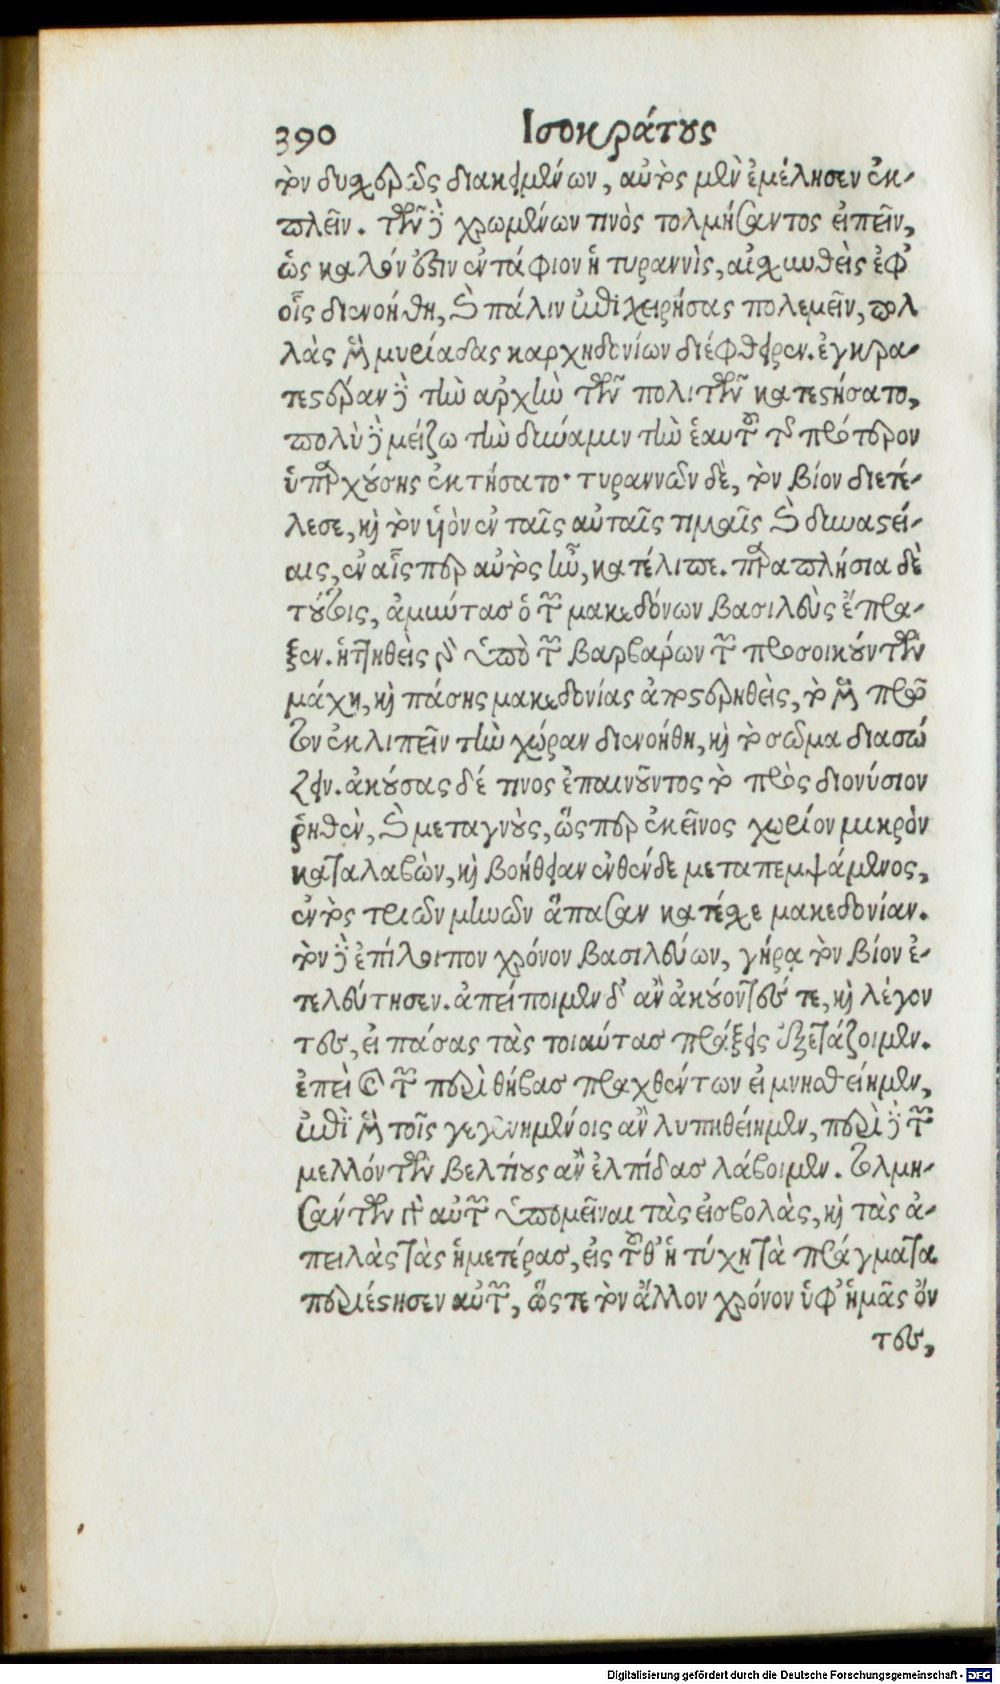 390 Ισοκράτους
τὸν δυσχερῶς διακειμένων, αὐτὸς μὲν ἐμέλησεν ἐκ-
πλεῖν. τῶν δὲ χρωμένων τινὸς τολμήσαντος εἰπεῖν,
ὡς καλόν ἐστιν ἐντάφιον ἡ τυραννὶς, αἰσχυνθεὶς ἐφ'
οἷς διενοήθη, καὶ πάλιν ἐπιχειρήσας πολεμεῖν, πολ
λὰς μὲν μυριάδας καρχηδονίων διέφθειρεν. ἐγκρα-
τεστέραν δὲ τὴν ἀρχὴν τῶν πολιτῶν κατεστήσατο,
πολὺ δὲ μείζω τὴν δύναμιν τὴν ἑαυτοῦ τῆς πρότερον
ὑπαρχούσης ἐκτήσατο· τυραννῶν δὲ, τὸν βίον διετέ-
λεσε, καὶ τὸν υἱὸν ἐν ταῖς αὐταῖς τιμαῖς καὶ δυναστεί-
αις, ἐν αἷσπερ αὐτὸς ἦν, κατέλιπε. παραπλήσια δὲ
τούτοις, ἀμύντας ὁ τῶν μακεδόνων βασιλεὺς ἔπρα-
ξεν. ἡττηθεὶς γὰρ ὑπὸ τῶν βαρβάρων τῶν προσοικούντων
μάχῃ, καὶ πάσης μακεδονίας ἀποστερηθεὶς, τὸ μὲν πρῶ
τον ἐκλιπεῖν τὴν χώραν διενοήθη, καὶ τὸ σῶμα διασώ
ζειν. ἀκούσας δέ τινος ἐπαινοῦντος τὸ πρὸς διονύσιον
ῥηθὲν, καὶ μεταγνοὺς, ὥσπερ ἐκεῖνος χωρίον μικρὸν
καταλαβὼν, καὶ βοήθειαν ἐνθένδε μεταπεμψάμενος,
ἐντὸς τριῶν μηνῶν ἅπασαν κατέσχε μακεδονίαν.
τὸν δὲ ἐπίλοιπον χρόνον βασιλεύων, γήρᾳ τὸν βίον ἐ-
τελεύτησεν. ἀπείποιμεν δ' ἂν ἀκούοντές τε, καὶ λέγον
τες, εἰ πάσας τὰς τοιαύτας πράξεις ἐξετάζοιμεν.
ἐπεὶ καὶ τῶν περὶ θήβας πραχθέντων εἰ μνησθείημεν,
ἐπὶ μὲν τοῖς γεγενημένοις ἂν λυπηθείημεν, περὶ δὲ τῶν
μελλόντων βελτίους ἂν ἐλπίδας λάβοιμεν. τολμη-
σάντων γὰρ αὐτῶν ὑπομεῖναι τὰς εἰσβολὰς, καὶ τὰς ἀ-
πειλὰς τὰς ἡμετέρας, εἰς τοῦθ' ἡ τύχη τὰ πράγματα
περιέστησεν αὐτῶν, ὥστε τὸν ἄλλον χρόνον ὑφ' ἡμᾶς ὄν
τες,
Digitalisierung gefördert durch die Deutsche Forschungsgemeinschaft - DFG